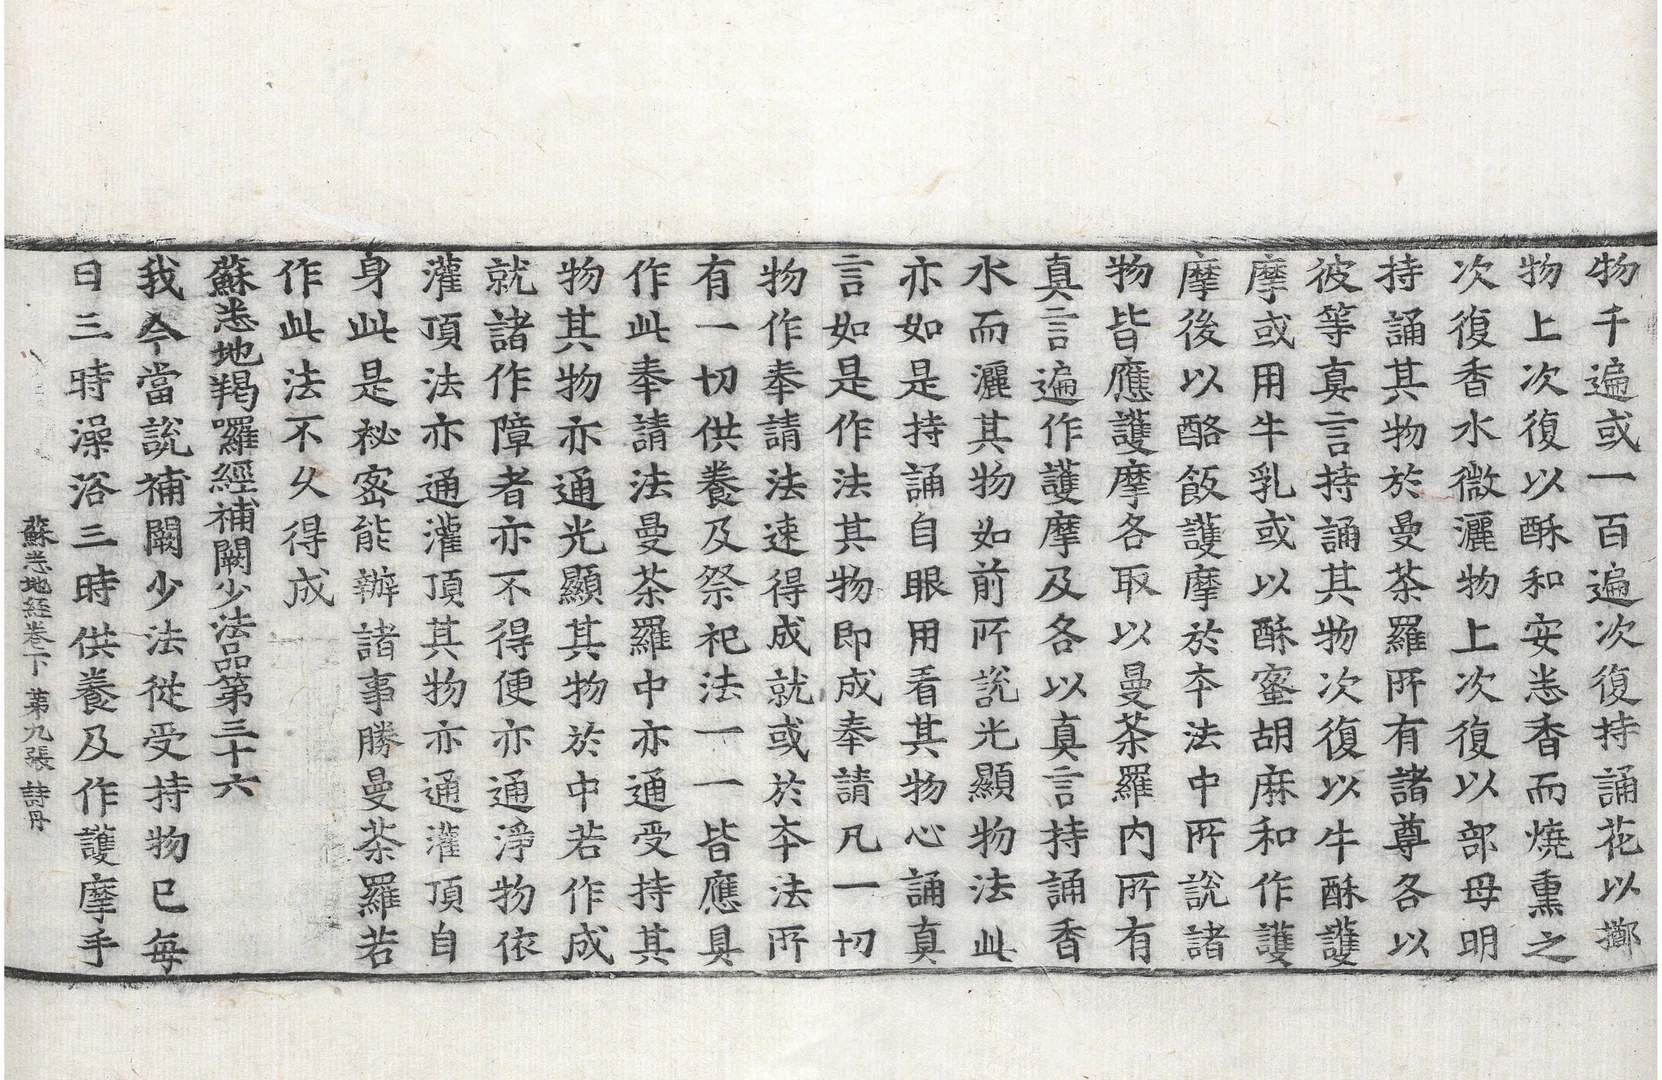 物千遍或一百遍次復持誦花以擲
物上次復以酥和安悉香而燒熏之
次復香水微灑物上次復以部母明
持誦其物於曼茶羅所有諸尊各以
彼等真言持誦其物次復以牛酥護
摩或用牛乳或以酥蜜胡麻和作護
摩後以酪飯護摩於本法中所說諸
物皆應護摩各取以曼茶羅內所有
真言遍作護摩及各以真言持誦香
水而灑其物如前所說光顯物法此
亦如是持誦自眼用看其物心誦真
言如是作法其物即成奉請凡一切
物作奉請法速得成就或於本法所
有一切供養及祭祀法一一皆應具
作此奉請法曼茶羅中亦通受持其
物其物亦通光顯其物於中若作成
就諸作障者亦不得便亦通淨物依
灌頂法亦通灌頂其物亦通灌頂自
身此是秘密能辦諸事勝曼茶羅若
作此法不久得成
蘇悉地羯囉經補闕少法品第三十六
我今當說補闕少法從受持物已每
日三時澡浴三時供養及作護摩手
蘇悉地經卷下 第九張 詩丹